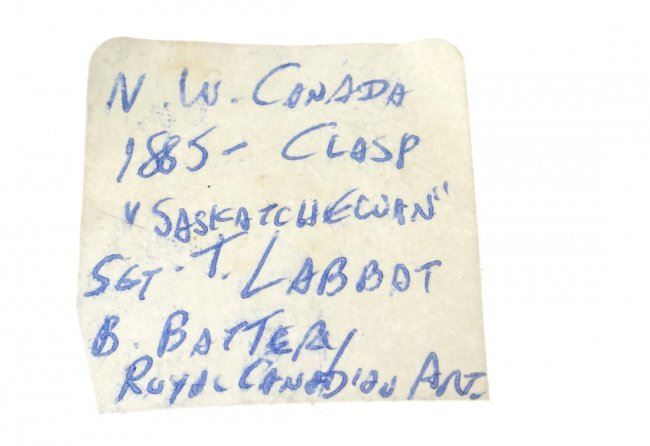 N.W. CANADA
1885 - CLASP
"SASKATCHEWAN"
SGT. T. LABBAT
B. BATTERY
ROYAL CANADIAN ART.